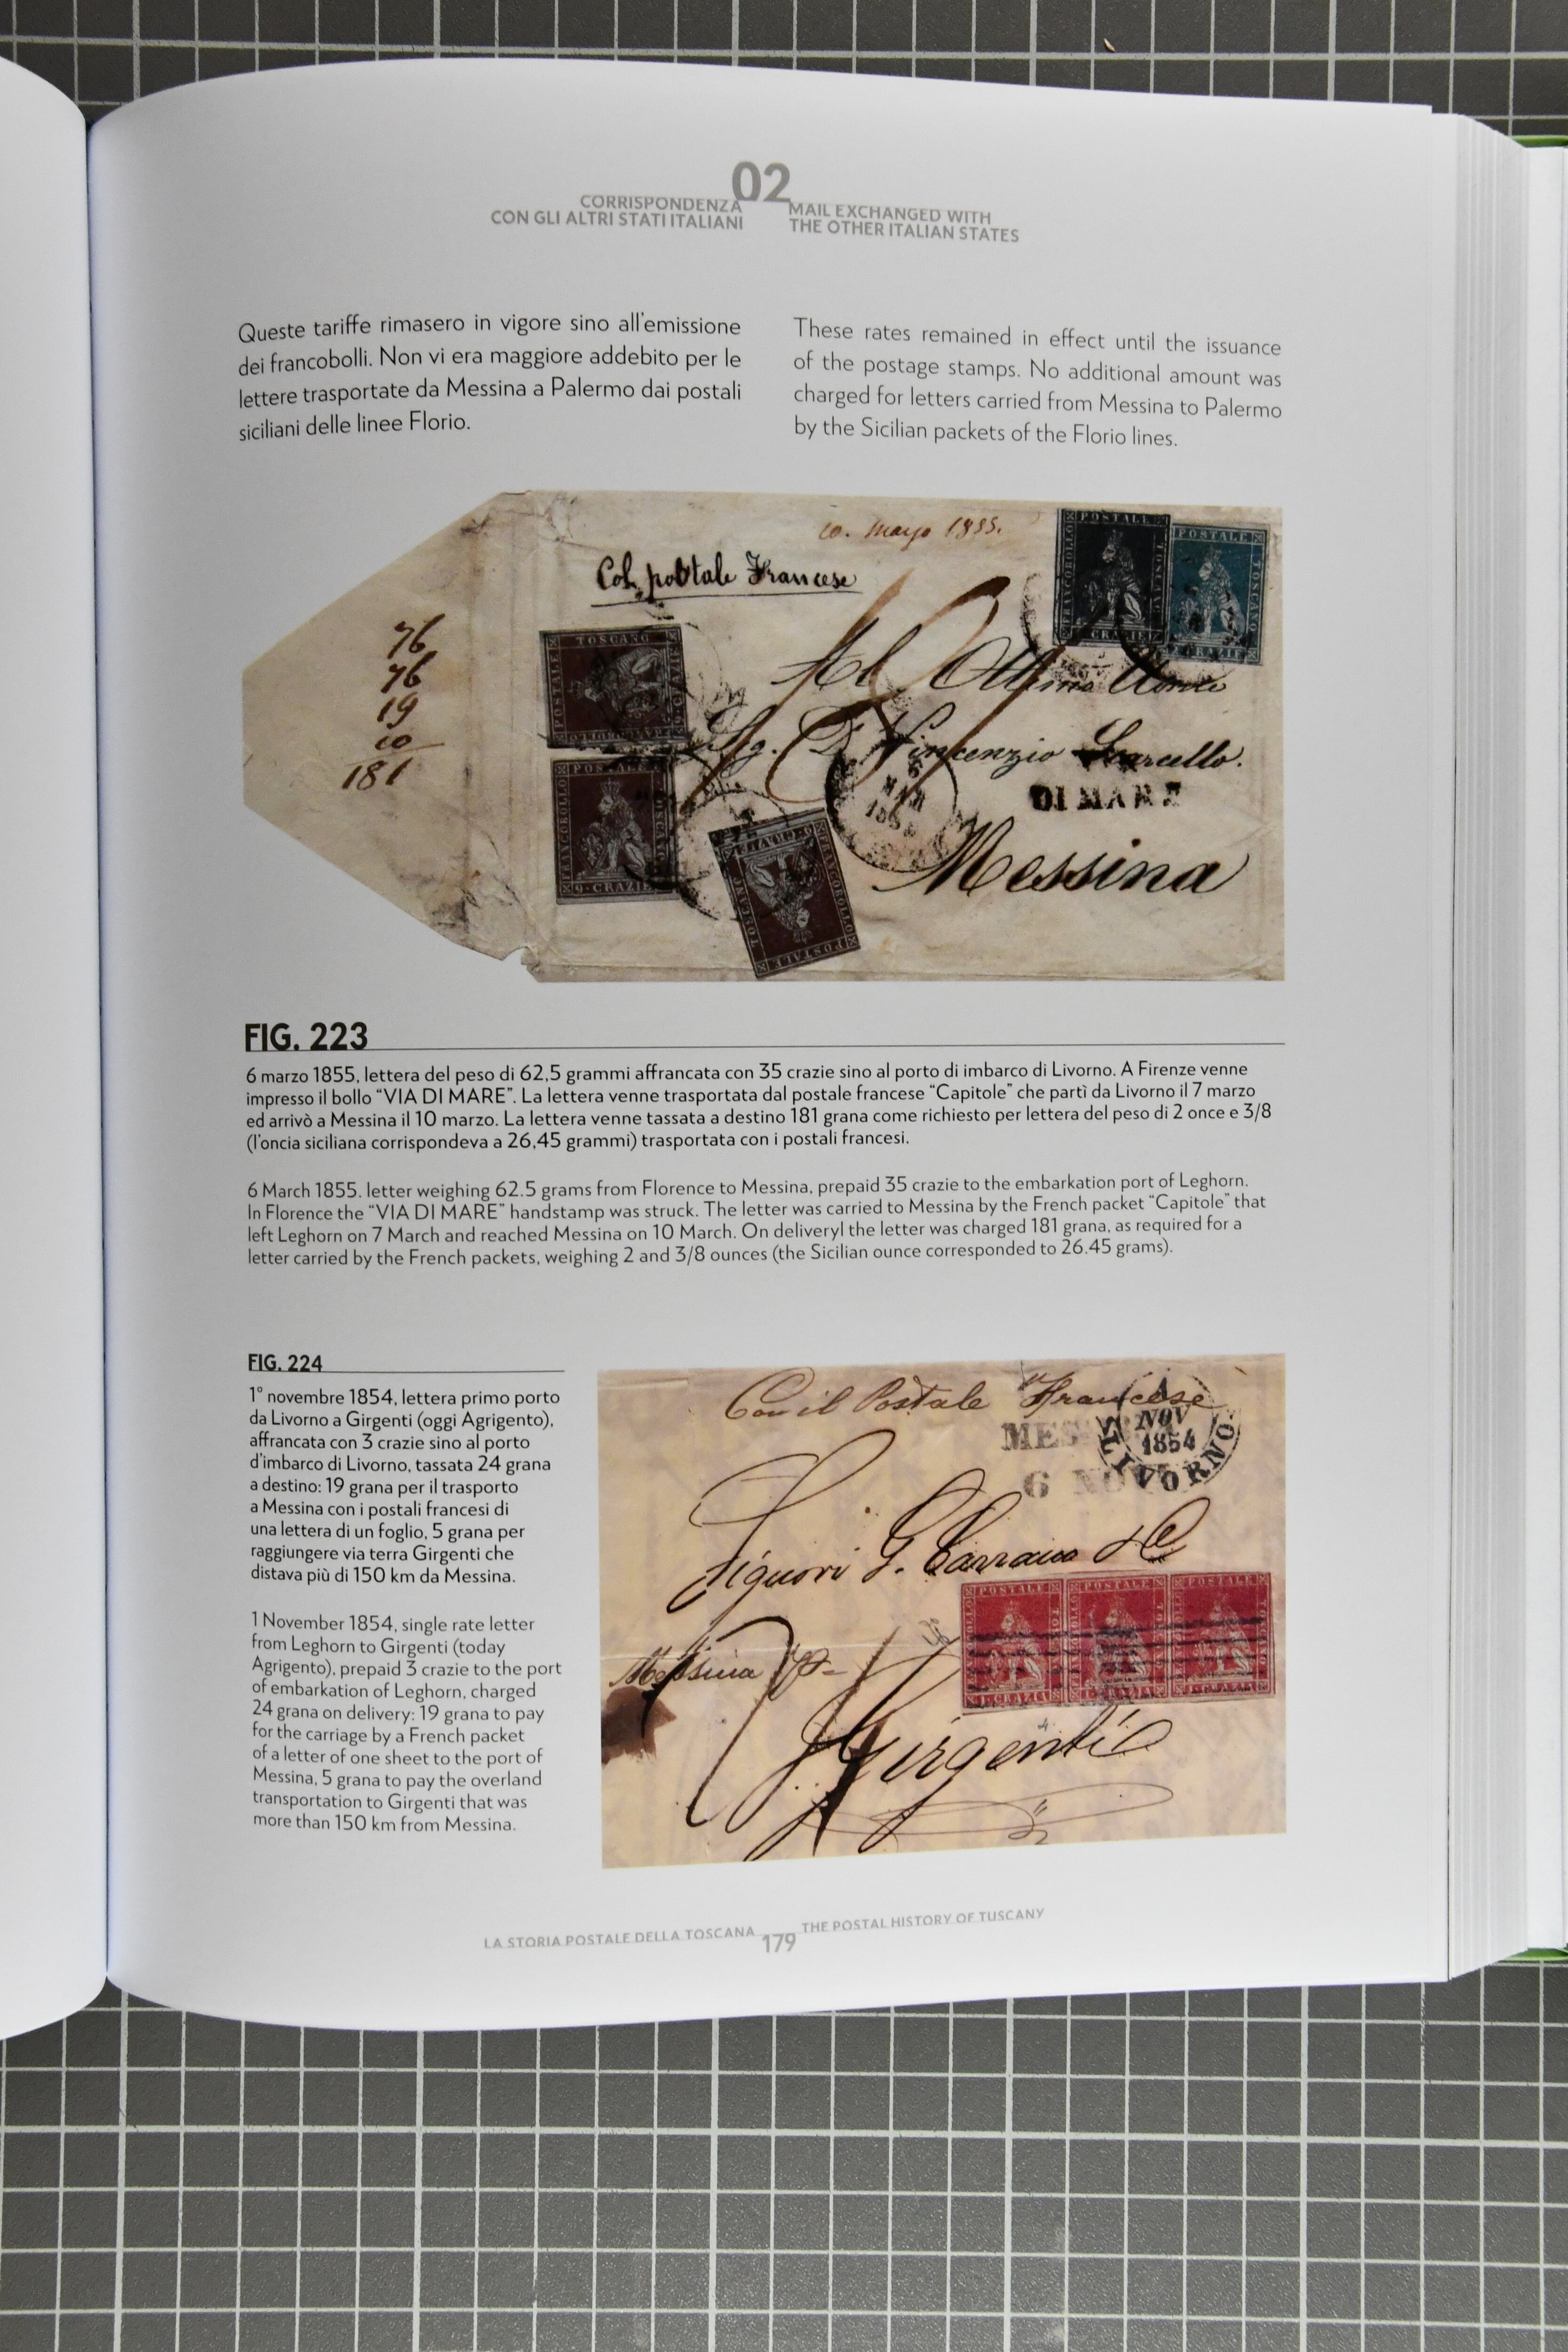 02
CORRISPONDENZA
CON GLI ALTRI STATI ITALIANI
MAIL EXCHANGED WITH
THE OTHER ITALIAN STATES
Queste tariffe rimasero in vigore sino all'emissione
dei francobolli. Non vi era maggiore addebito per le
lettere trasportate da Messina a Palermo dai postali
siciliani delle linee Florio.
These rates remained in effect until the issuance
of the postage stamps. No additional amount was
charged for letters carried from Messina to Palermo
by the Sicilian packets of the Florio lines.
10. Mayo 1855.
Col postale Francese
76
76
19
10
181
Vincenzio Scarcello.
DI MARE
Messina
6
MAR
POSTALE
TOSCANO
FRANCOBOLLO
9 CRAZIE
FIG. 223
6 marzo 1855, lettera del peso di 62,5 grammi affrancata con 35 crazie sino al porto di imbarco di Livorno. A Firenze venne
impresso il bollo “VIA DI MARE”. La lettera venne trasportata dal postale francese “Capitole” che partì da Livorno il 7 marzo
ed arrivò a Messina il 10 marzo. La lettera venne tassata a destino 181 grana come richiesto per lettera del peso di 2 once e 3/8
(l'oncia siciliana corrispondeva a 26,45 grammi) trasportata con i postali francesi.
6 March 1855. letter weighing 62.5 grams from Florence to Messina, prepaid 35 crazie to the embarkation port of Leghorn.
In Florence the “VIA DI MARE” handstamp was struck. The letter was carried to Messina by the French packet “Capitole” that
left Leghorn on 7 March and reached Messina on 10 March. On deliveryl the letter was charged 181 grana, as required for a
letter carried by the French packets, weighing 2 and 3/8 ounces (the Sicilian ounce corresponded to 26.45 grams).
FIG. 224
1° novembre 1854, lettera primo porto
da Livorno a Girgenti (oggi Agrigento),
affrancata con 3 crazie sino al porto
d'imbarco di Livorno, tassata 24 grana
a destino: 19 grana per il trasporto
a Messina con i postali francesi di
una lettera di un foglio, 5 grana per
raggiungere via terra Girgenti che
distava più di 150 km da Messina.
1 November 1854, single rate letter
from Leghorn to Girgenti (today
Agrigento), prepaid 3 crazie to the port
of embarkation of Leghorn, charged
24 grana on delivery: 19 grana to pay
for the carriage by a French packet
of a letter of one sheet to the port of
Messina, 5 grana to pay the overland
transportation to Girgenti that was
more than 150 km from Messina.
Con il Postale Francese
NOV
1854
LIVORNO
6 NOV
Signori G.
POSTALE POSTALE POSTALE
1 CRAZIA 1 CRAZIA 1 CRAZIA
Messina
Girgenti
LA STORIA POSTALE DELLA TOSCANA 179 THE POSTAL HISTORY OF TUSCANY